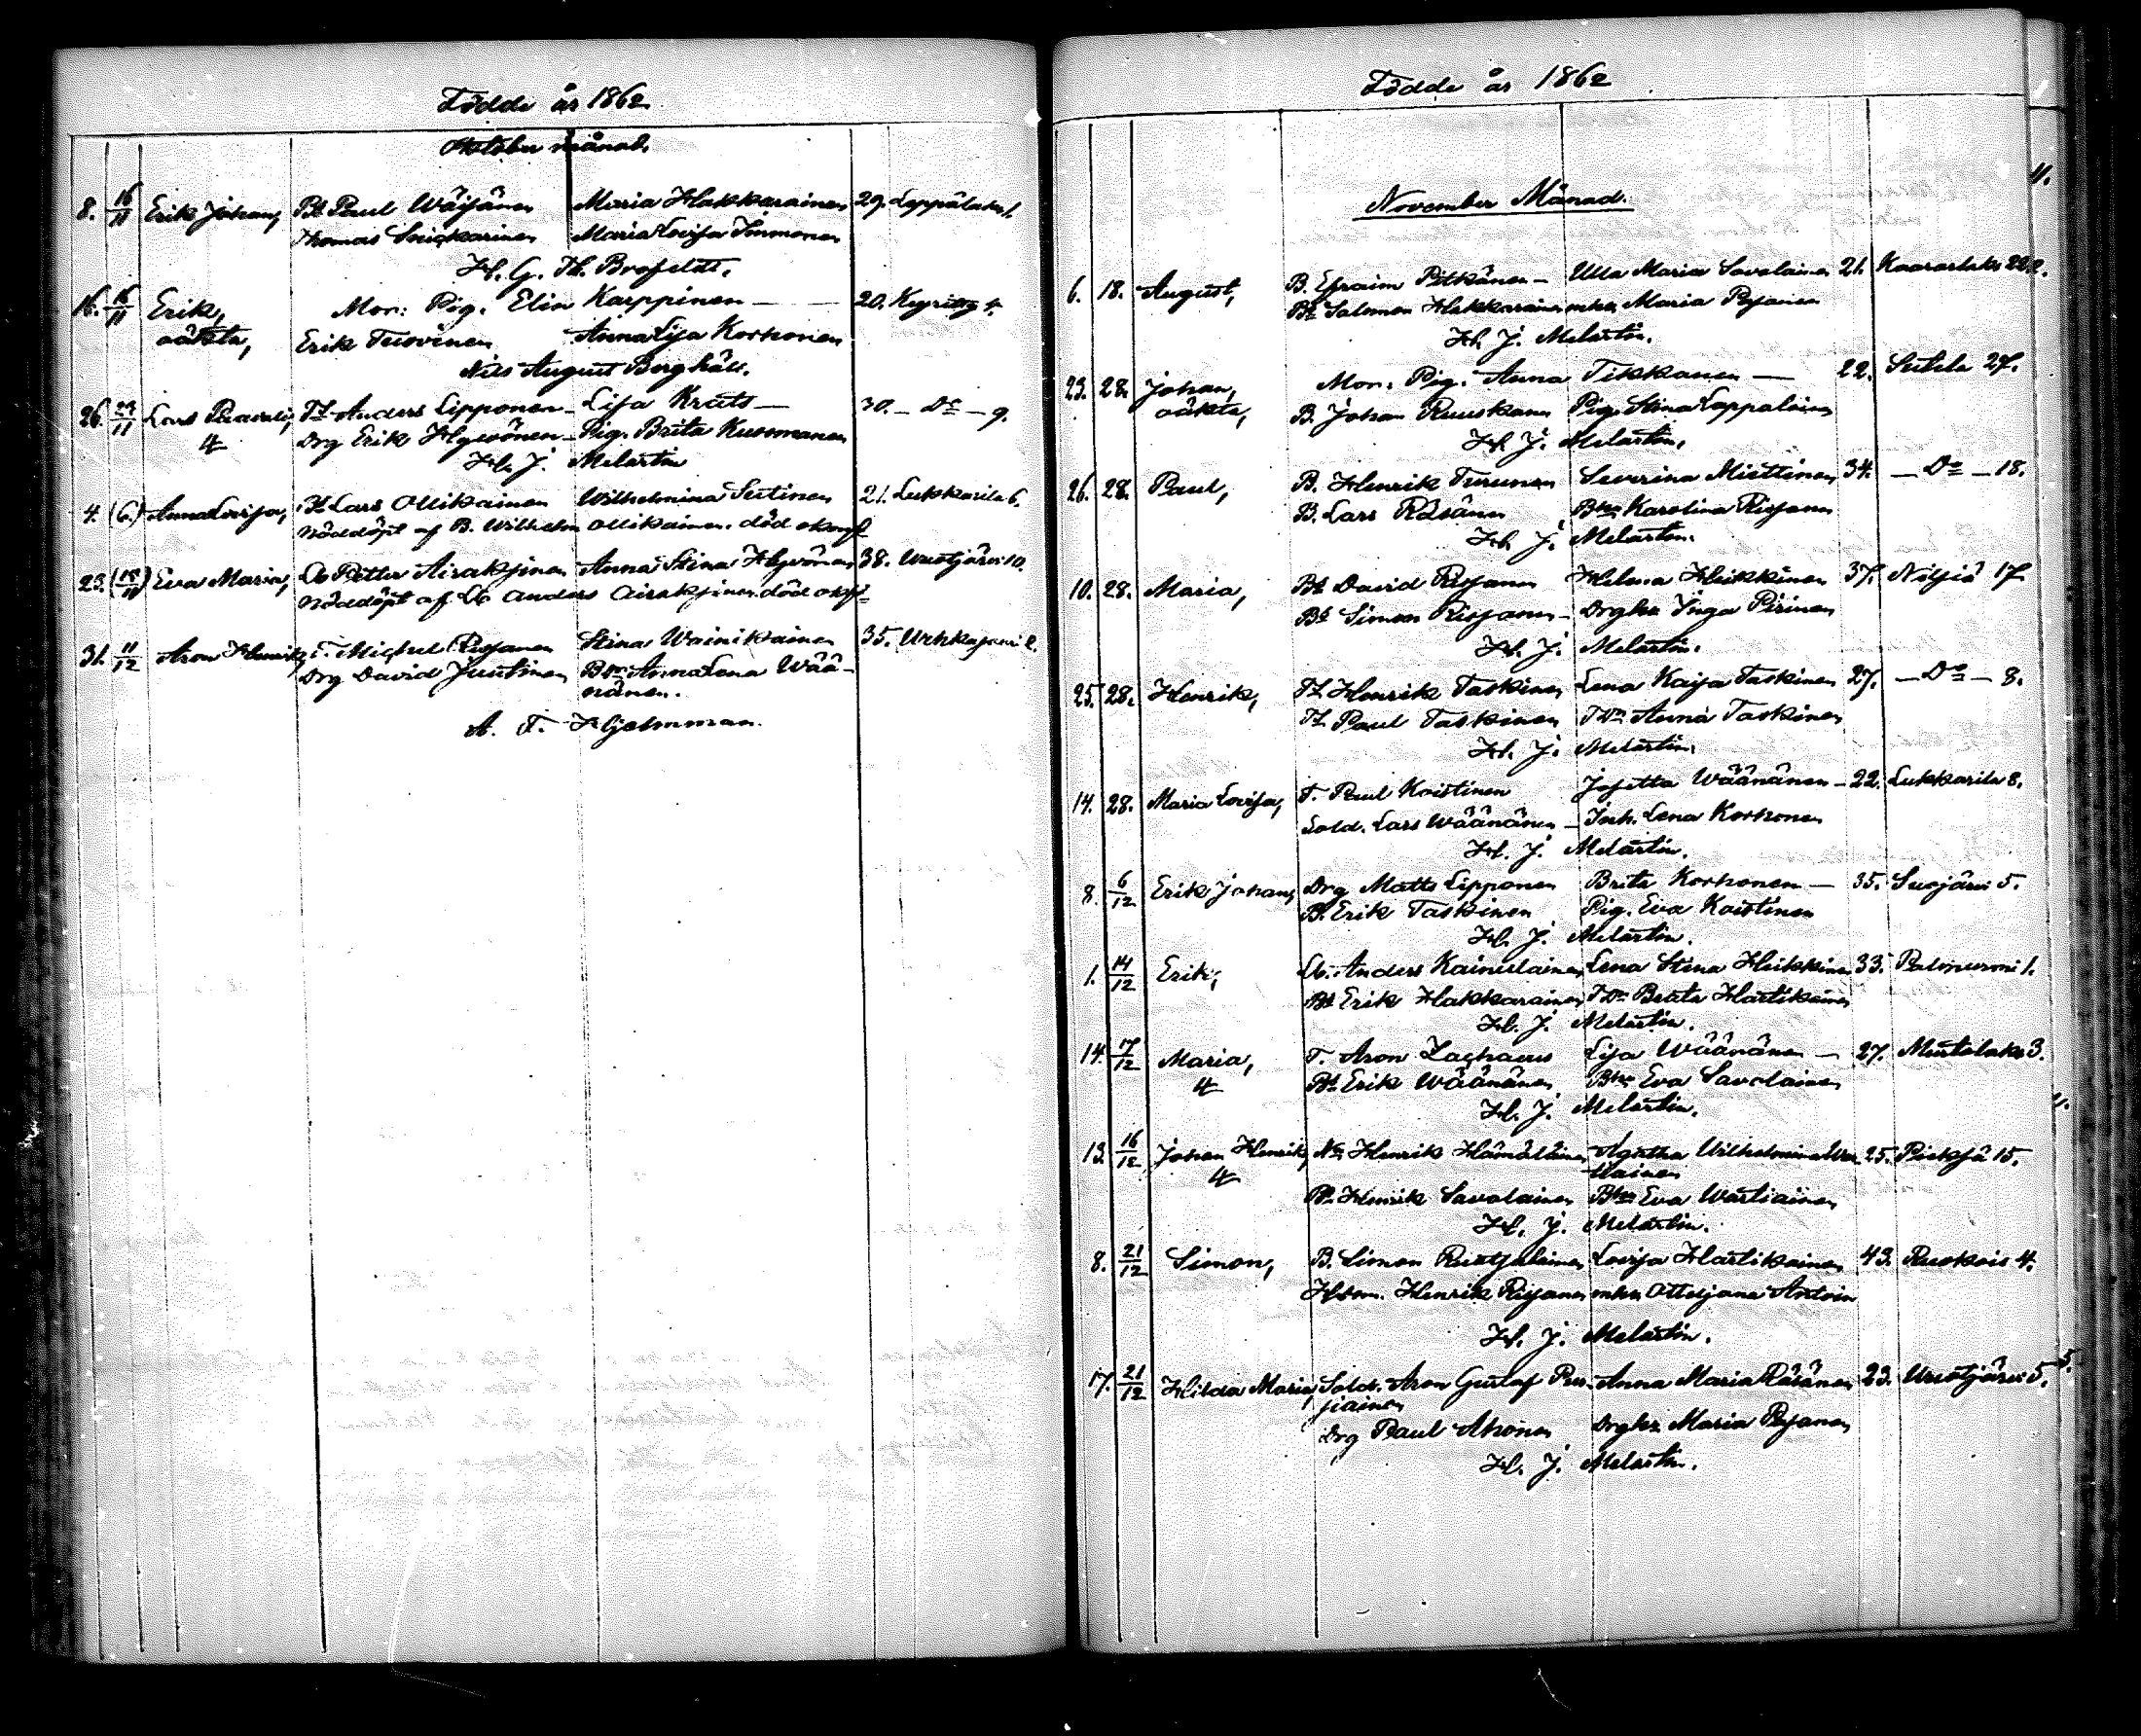 Födde år 1862
Oktober månad.
8. 16/11 Erik Johan, Bd Paul Wäisänen Maria Hakkarainen 29. Leppälaks 1.
Thomas Snickarinen Maria Lovisa Immonen
H. G. Th. Brofeldt.
16. 16/11 Erik, Mor: Pig. Elin Karppinen — 20.
oäkta, Erik Tuovinen Anna Lisa Korhonen
Nils August Berghäll.
26. 23/11 Lars Paavali, Tl Anders Lipponen – Lisa Kruts — 30. – Do – 9.
4 Drg Erik Hyvönen – Pig. Brita Kuosmanen
H. J. Melartin
4. (6.) Anna Lovisa, Tl Lars Ollikainen Wilhelmina Sutinen 21. Lukkarila 6.
nöddöpt af B. Wilhelm Ollikainen. död okonf
23. (18/11) Eva Maria, Lb Petter Airaksinen Anna Stina Hyvönen 38. Wuotjärvi 10.
nöddöpt af Lb Anders Airaksinen död okf
31. 11/12 Aron Henrik, T. Michel Risanen Stina Wainikainen 35. 2.
Drg David Juutinen Bdr Anna Lena Wää-
nänen.
A. F. Hjelmman.
Födde år 1862
November Månad.
6. 18. August, B. Efraim Pitkänen – Ulla Maria Savolainen 21. Kaaraslaks 22.
Bd Salomon Hakkarainen mhu Maria Risanen
H. J. Melartin.
23. 28. Johan, Mor: Pig. Anna Tikkanen — 22. Sutela 27.
oäkta, B. Johan Ruuskanen Pig. Stina Lappalainen
H. J. Melartin.
26. 28. Paul, B. Henrik Turunen Severina Miettinen 34. – Do – 18.
B. Lars Räsänen Bhu Karolina Risanen
H. J. Melartin.
10. 28. Maria, Bd David Risanen Helena Heikkinen 37. Nilsiä 17
Bd Simon Risanen – Drghu Inga Pirinen
H. J. Melartin.
25. 28. Henrik, Tl Henrik Taskinen Lena Kaisa Taskinen 27. – Do – 8.
Tl Paul Taskinen TDr Anna Taskinen
H. J. Melartin.
14. 28. Maria Lovisa, T. Paul Koistinen Josetta Wäänänen – 22. Lukkarila 8.
Sold. Lars Wäänänen – Inh. Lena Korhonen
H. J. Melartin.
8. 6/12 Erik Johan, Drg Matts Lipponen Brita Korhonen — 35. Suojärvi 5.
B. Erik Taskinen Pig. Eva Koistinen
H. J. Melartin.
1. 14/12 Erik, Lb. Anders Kainulainen Lena Stina Heikkinen 33. Palonurmi 1.
Bd Erik Hakkarainen TDr Beata Hartikainen
H. J. Melartin.
14. 17/12 Maria, T. Aron Zachaeus Lisa Wäänänen — 27. Murtolaks 3.
4 Bd Erik Wäänänen Bhu Eva Savolainen
H. J. Melartin.
13. 16/12 Johan Henrik, Nb Henrik Hämäläinen Agatha Wilhelmina War- 25. Pieksä 15.
4 tiainen
Bd Henrik Savolainen Bhu Eva Wartiainen
H. J. Melartin.
8. 21/12 Simon, B. Simon Ruotsalainen Lovisa Hartikainen 43. Ruokois 4.
Hbm. Henrik Risanen mhu Ottiljana Antoin
H. J. Melartin.
17. 21/12 Hilda Maria, Sold. Aron Gustaf Pur- Anna Maria Räsänen 23. Wuotjärvi 5.
siainen
Drg Paul Ahonen Drghu Maria Risanen
H. J. Melartin.